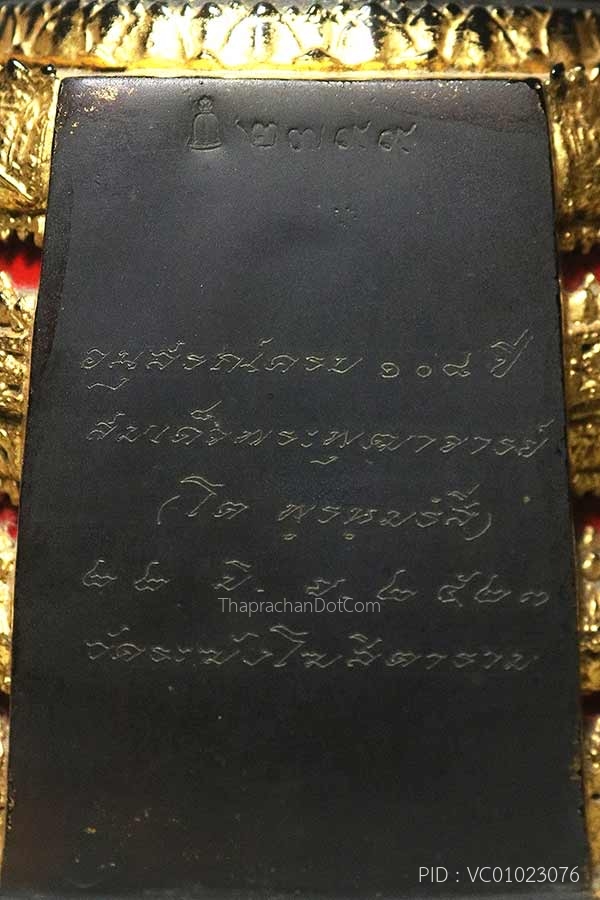 ๒๗๙๙
อนุสรณ์ครบ ๑๐๘ ปี
สมเด็จพระพุฒาจารย์
(โต พฺรหฺมรํสี)
๒๒ มิ. ย. ๒๕๒๓
ThaprachanDotCom
วัดระฆังโฆสิตาราม
PID : VC01023076